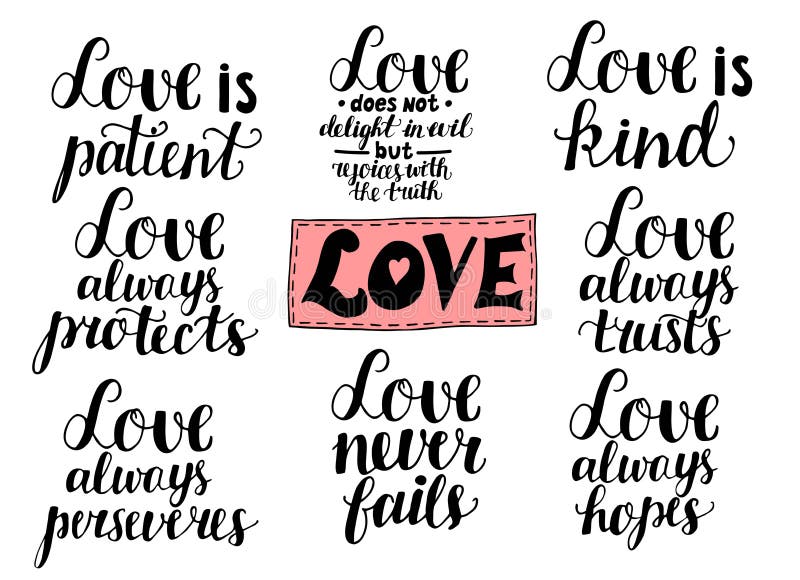 Love is
patient
Love
does not
delight in evil
but
rejoices with
the truth
Love is
kind
Love
always
protects
LOVE
Love
always
trusts
Love
always
perseveres
Love
never
fails
Love
always
hopes